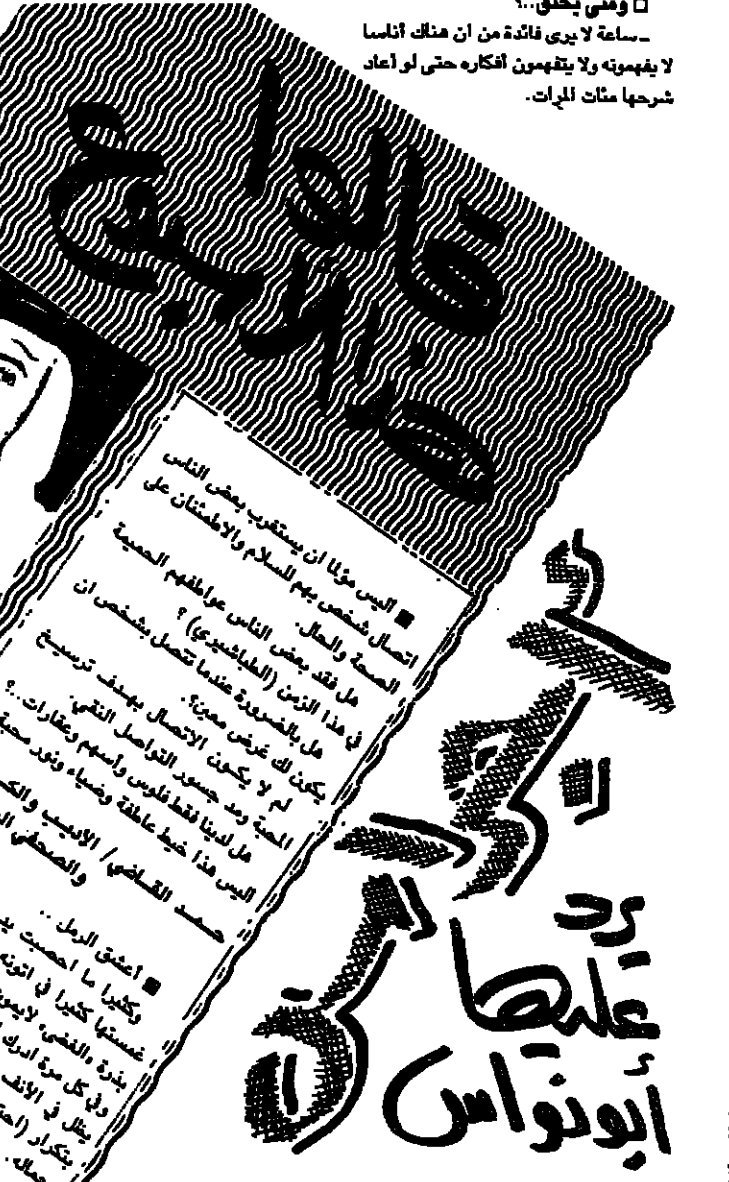 □ ومتى يحنق..؟
ـ ساعة لا يرى فائدة من ان هناك أناسا
لا يفهمونه ولا يتفهمون أفكاره حتى لو أعاد
شرحها مئات المرات.
قالوا
هذا الأسبوع
■ اليس مؤلما ان يستغرب بعض الناس
اتصال شخص بهم للسلام والاطمئنان على
الصحة والحال.
هل فقد بعض الناس عواطفهم الحميمة
في هذا الزمن (الطباشيري) ؟
هل بالضرورة عندما تتصل بشخص ان
يكون لك غرض معين؟.
لم لا يكون الاتصال بهدف ترسيخ
المحبة ومد جسور التواصل النقي.
هل لدينا فقط فلوس وأسهم وعقارات..؟
اليس هذا خيط عاطفة وضياء ونور محبة
حمد القاضي/ الأديب
والصحفي
■ أعشق الرمل ..
وكثيرا ما احصيت
غمستها كثيرا في اتونه
بذرة «الغضى»
وفي كل مرة ادرك
في الأنف
بتكرار
جماله.
يرد
عليها
أبو نواس